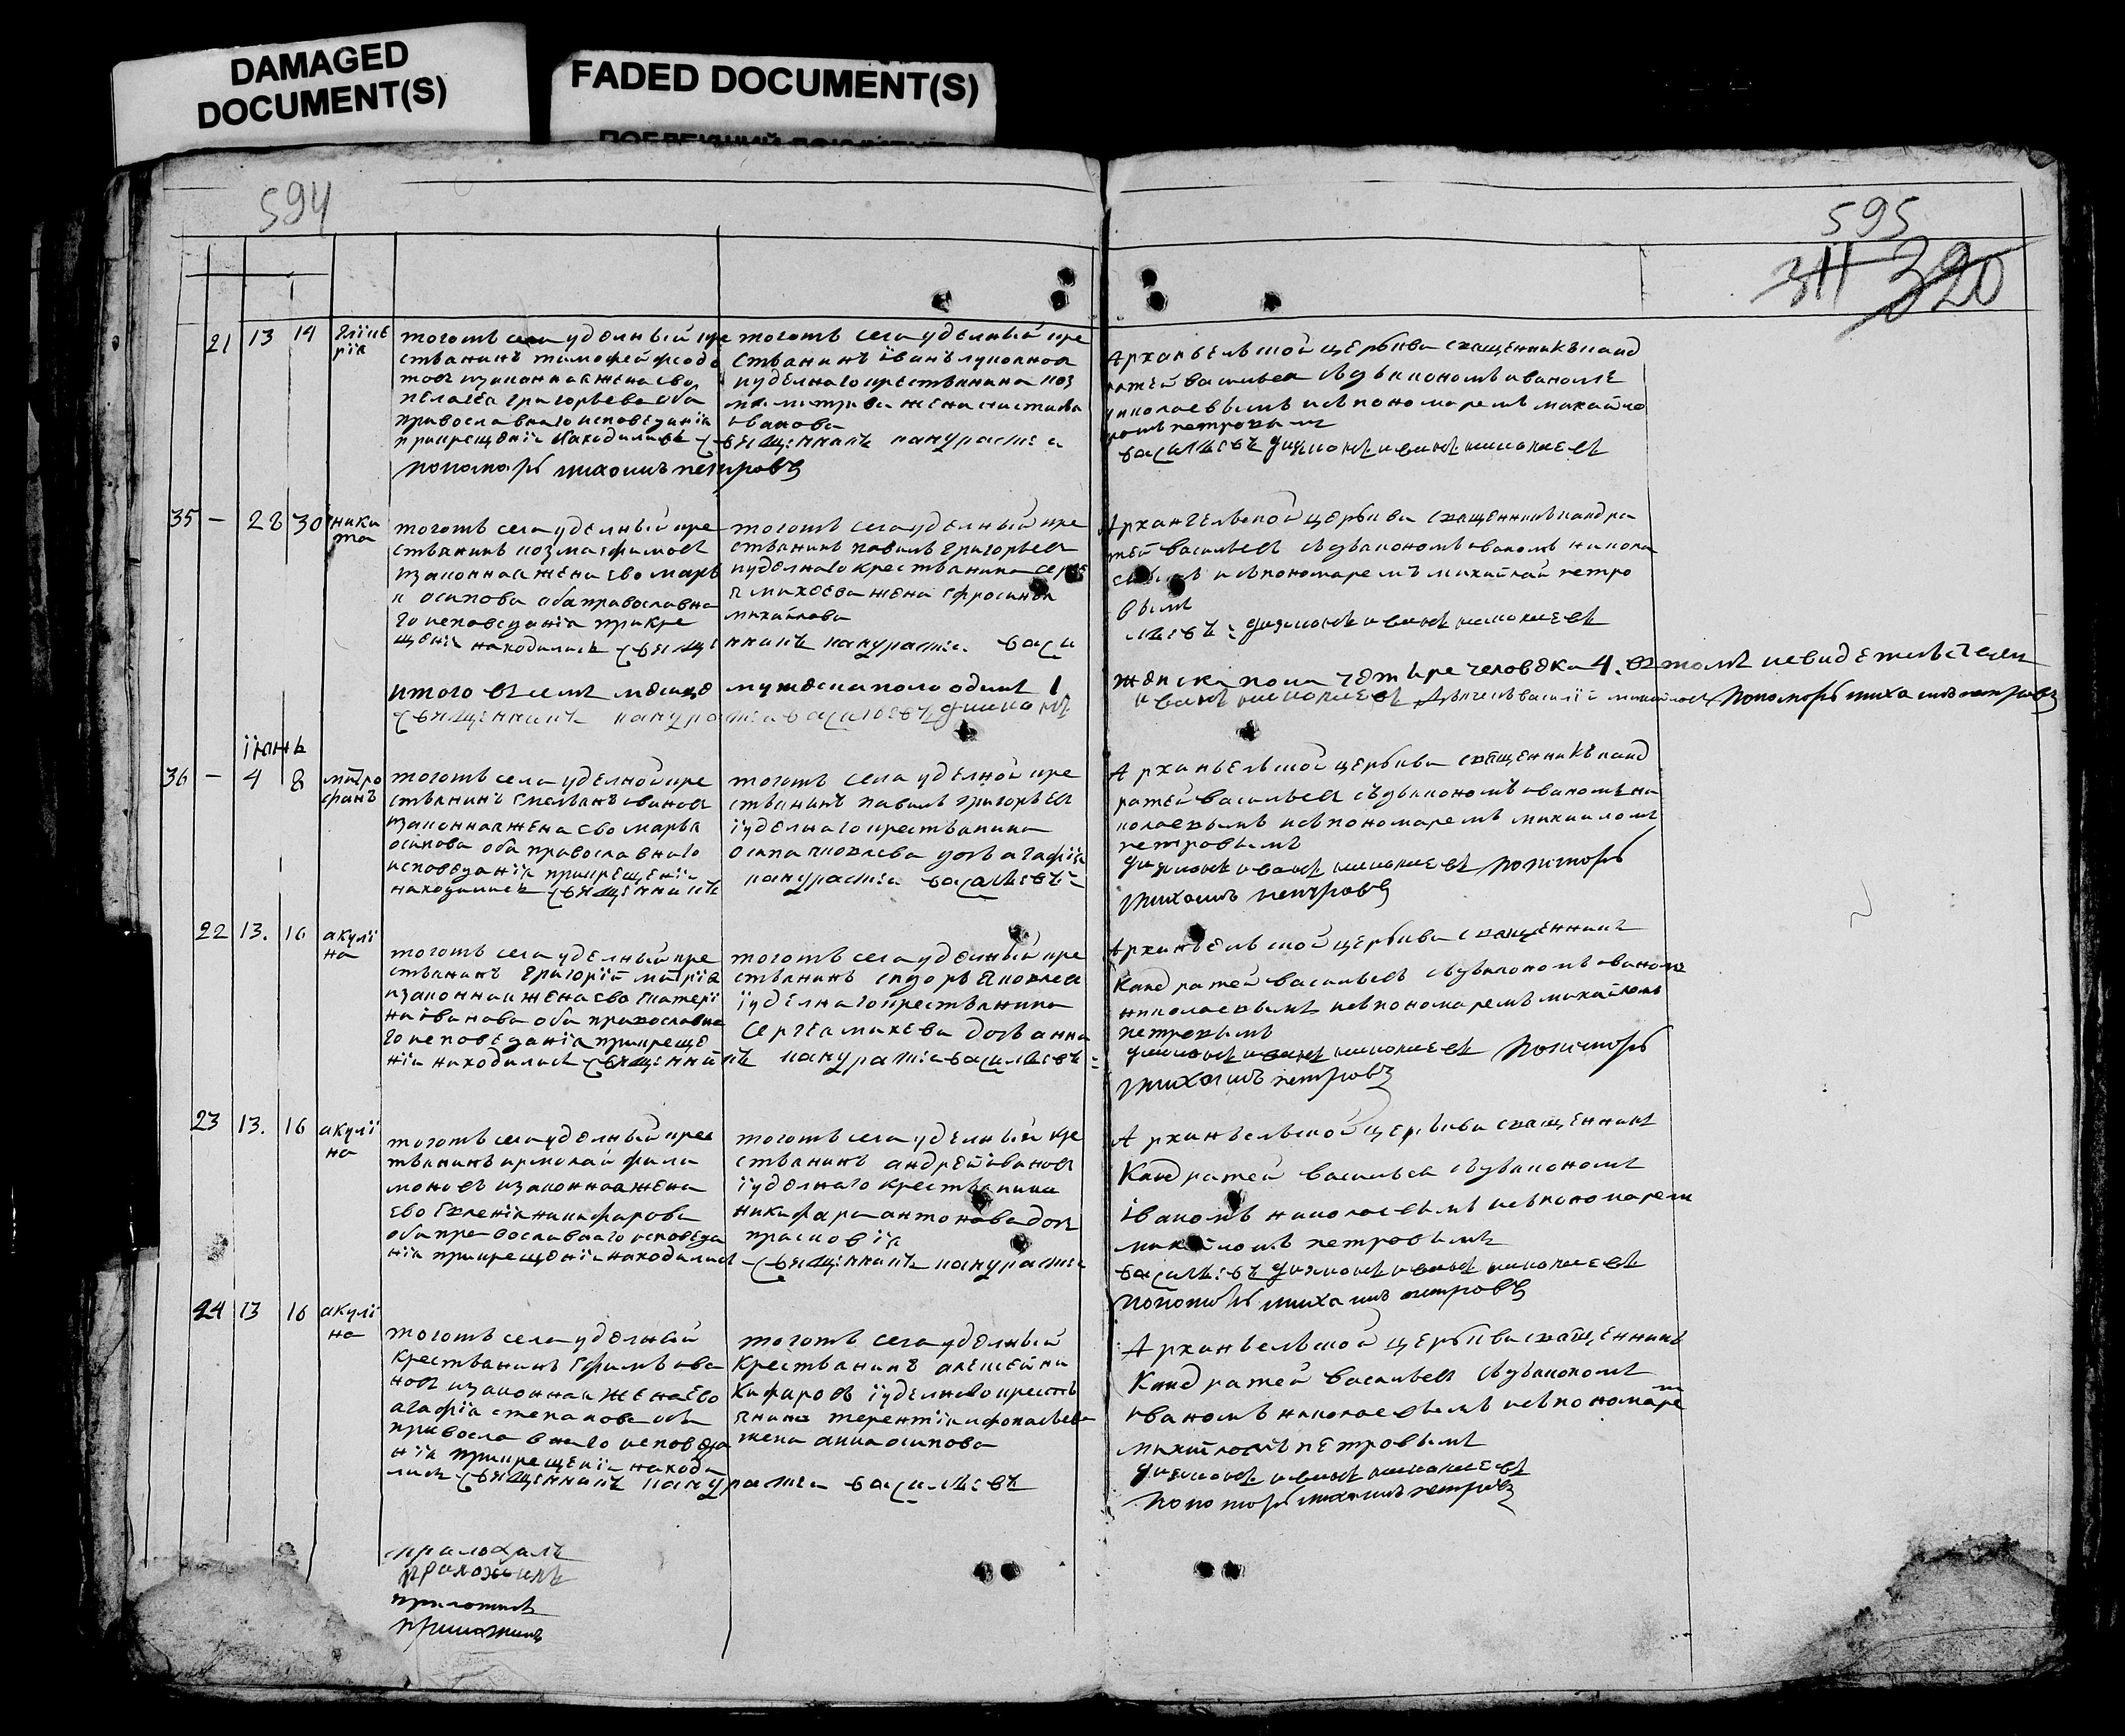 DAMAGED
DOCUMENT(S)
FADED DOCUMENT(S)
594
595
311 320
21 13 14 глике
рїа
тогожъ села уделный кре
стьянинъ тимофей федо
товъ изаконная жена ево
пелагея григорьева оба
православнаго исповеданїя
прикрещенїе находились
тогожъ села уделный кре
стьянинъ їванъ
иуделнаго крестьянина коз
мы петрова жена настасья
иванова
священникъ кандратей
Архангельской церкви священникъ канд
ратей васильев съдьякономъ иваномъ
николаевымъ исъпономаремъ михайло
вомъ петровым
васильевъ диаконъ иванъ николаевъ
пономарь михаилъ петровъ
35 — 28 30 ники
та
тогожъ села уделный кре
стьянинъ козма ефимовъ
изаконная жена ево марь
я осипова оба православна
го исповеданїя прикре
щенїе находились священ
тогожъ села уделный кре
стьянинъ павилъ григорьевъ
иуделнаго крестьянина серге
я михеева жена ефросинья
михайлова
никъ кандратей васи
Архангельской церкви священникъ кандра
тей васильевъ съдьякономъ иваномъ никола
евымъ исъпономаремъ михайлой петро
вымъ
льевъ диаконъ иванъ николаевъ
итого всемъ месяце мужеска пола одинъ 1
женска пола четыре человека 4. втомъ исвидетельствуем
священникъ кандратей васильевъ диаконъ
иванъ николаевъ дьячекъ василїй михайловъ пономарь михаилъ петровъ
їюнь
36 — 4 8 митро
фанъ
тогожъ села уделной кре
стьянинъ емельянъ ивановъ
изаконная жена ево марья
осипова оба православнаго
исповеданїя прикрещенїе
находились священникъ
тогожъ села уделной кре
стьянинъ павилъ григорьевъ
їуделнаго крестьянина
осипа яковлева дочь агафїя
кандратей васильевъ
Архангельской церкви священникъ канд
ратей васильевъ съдьякономъ иваномъ ни
колаевымъ исъпономаремъ михаиломъ
петровымъ
диаконъ иванъ николаевъ пономарь
михаилъ петровъ
22 13. 16 акулї
на
тогожъ села уделный кре
стьянинъ григорїй
изаконная жена ево екатери
на їванова оба православна
го исповеданїя прикреще
нїе находились священникъ
тогожъ села уделный кре
стьянинъ сидоръ яковлев
їуделнаго крестьянина
сергея михеева дочь анна
кандратей васильевъ
Архангельской церкви священникъ
Кандратей васильевъ съдьякономъ иваномъ
николаевымъ исъпономаремъ михайломъ
петровымъ
диаконъ иванъ николаевъ пономарь
михаилъ петровъ
23 13. 16 акулї
на
тогожъ села уделный крес
тьянинъ ермолай фили
моновъ изаконная жена
ево евгенїя никифарова
оба православнаго исповеда
нїя прикрещенїе находились
тогожъ села уделный кре
стьянинъ андрей ївановъ
їуделнаго крестьянина
никифара антонова дочь
прасковїя
священникъ кандратей
Архангельской церкви священникъ
Кандратей васильев съдьякономъ
їваномъ николаевымъ исъпономарем
михайломъ петровымъ
васильевъ диаконъ иванъ николаевъ
пономарь михаилъ петровъ
24 13 16 акулї
на
тогожъ села уделный
крестьянинъ ефимъ ива
новъ изаконная жена ево
агафїя степанова оба
православнаго исповеда
нїя прикрещенїе находи
лись священникъ кандратей васильевъ
тогожъ села уделный
крестьянинъ алексей ни
кифаровъ їуделнаго кресть
янина терентїя афонасьева
жена анна осипова
Архангельской церкви священникъ
Кандратей васильевъ съдьякономъ
иваномъ николаевымъ исъпономаре
михайломъ петровымъ
диаконъ иванъ николаевъ
пономарь михаилъ петровъ
приложилъ
приложилъ